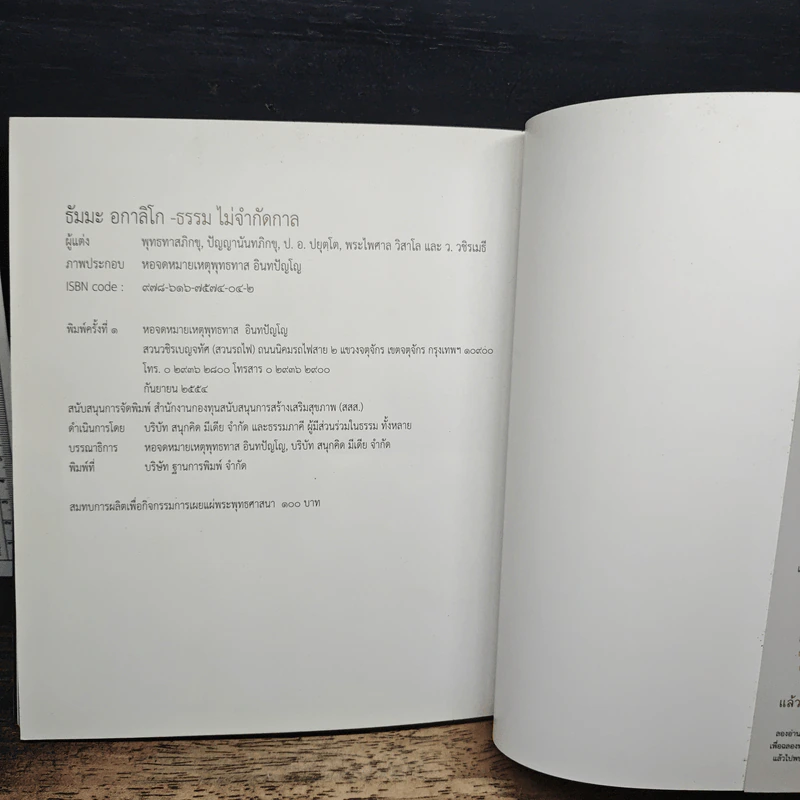 ธัมมะ อกาลิโก -ธรรม ไม่จำกัดกาล
ผู้แต่ง พุทธทาสภิกขุ, ปัญญานันทภิกขุ, ป. อ. ปยุตฺโต, พระไพศาล วิสาโล และ ว. วชิรเมธี
ภาพประกอบ หอจดหมายเหตุพุทธทาส อินทปัญโญ
ISBN code : ๙๗๘-๖๑๖-๗๕๗๔-๐๔-๒
พิมพ์ครั้งที่ ๑ หอจดหมายเหตุพุทธทาส อินทปัญโญ
สวนวชิรเบญจทัศ (สวนรถไฟ) ถนนนิคมรถไฟสาย ๒ แขวงจตุจักร เขตจตุจักร กรุงเทพฯ ๑๐๙๐๐
โทร. ๐ ๒๙๓๖ ๒๘๐๐ โทรสาร ๐ ๒๙๓๖ ๒๙๐๐
กันยายน ๒๕๕๔
สนับสนุนการจัดพิมพ์ สำนักงานกองทุนสนับสนุนการสร้างเสริมสุขภาพ (สสส.)
ดำเนินการโดย บริษัท สนุกคิด มีเดีย จำกัด และธรรมภาคี ผู้มีส่วนร่วมในธรรม ทั้งหลาย
บรรณาธิการ หอจดหมายเหตุพุทธทาส อินทปัญโญ, บริษัท สนุกคิด มีเดีย จำกัด
พิมพ์ที่ บริษัท ฐานการพิมพ์ จำกัด
สมทบการผลิตเพื่อกิจกรรมการเผยแผ่พระพุทธศาสนา ๑๐๐ บาท
แล้ว
ลองอ่าน
เพื่อฉลอง
แล้วไป